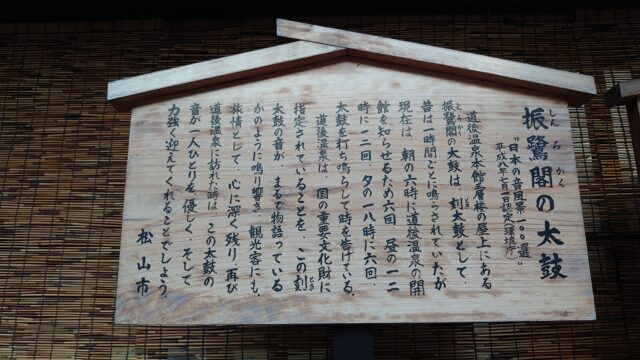 振鷺閣の太鼓
しんろかく
"日本の音風景一〇〇選"
道後温泉本館三層楼の屋上にある
振鷺閣の太鼓は、刻太鼓として、
昔は一時間ごとに鳴らされていたが
現在は、朝の六時に道後温泉の開
館を知らせるため六回、昼の一二
時に一二回、夕の一八時に六回、
太鼓を打ち鳴らして時を告げている。
道後温泉は、国の重要文化財に
指定されていることを、この刻
太鼓の音が、まるで物語っている
かのように鳴り響き、観光客にも、
旅情として、心に深く残り、再び
道後温泉に訪れた時は、この太鼓の
音が一人ひとりを優しく、そして
力強く迎えてくれることでしょう。
松山市